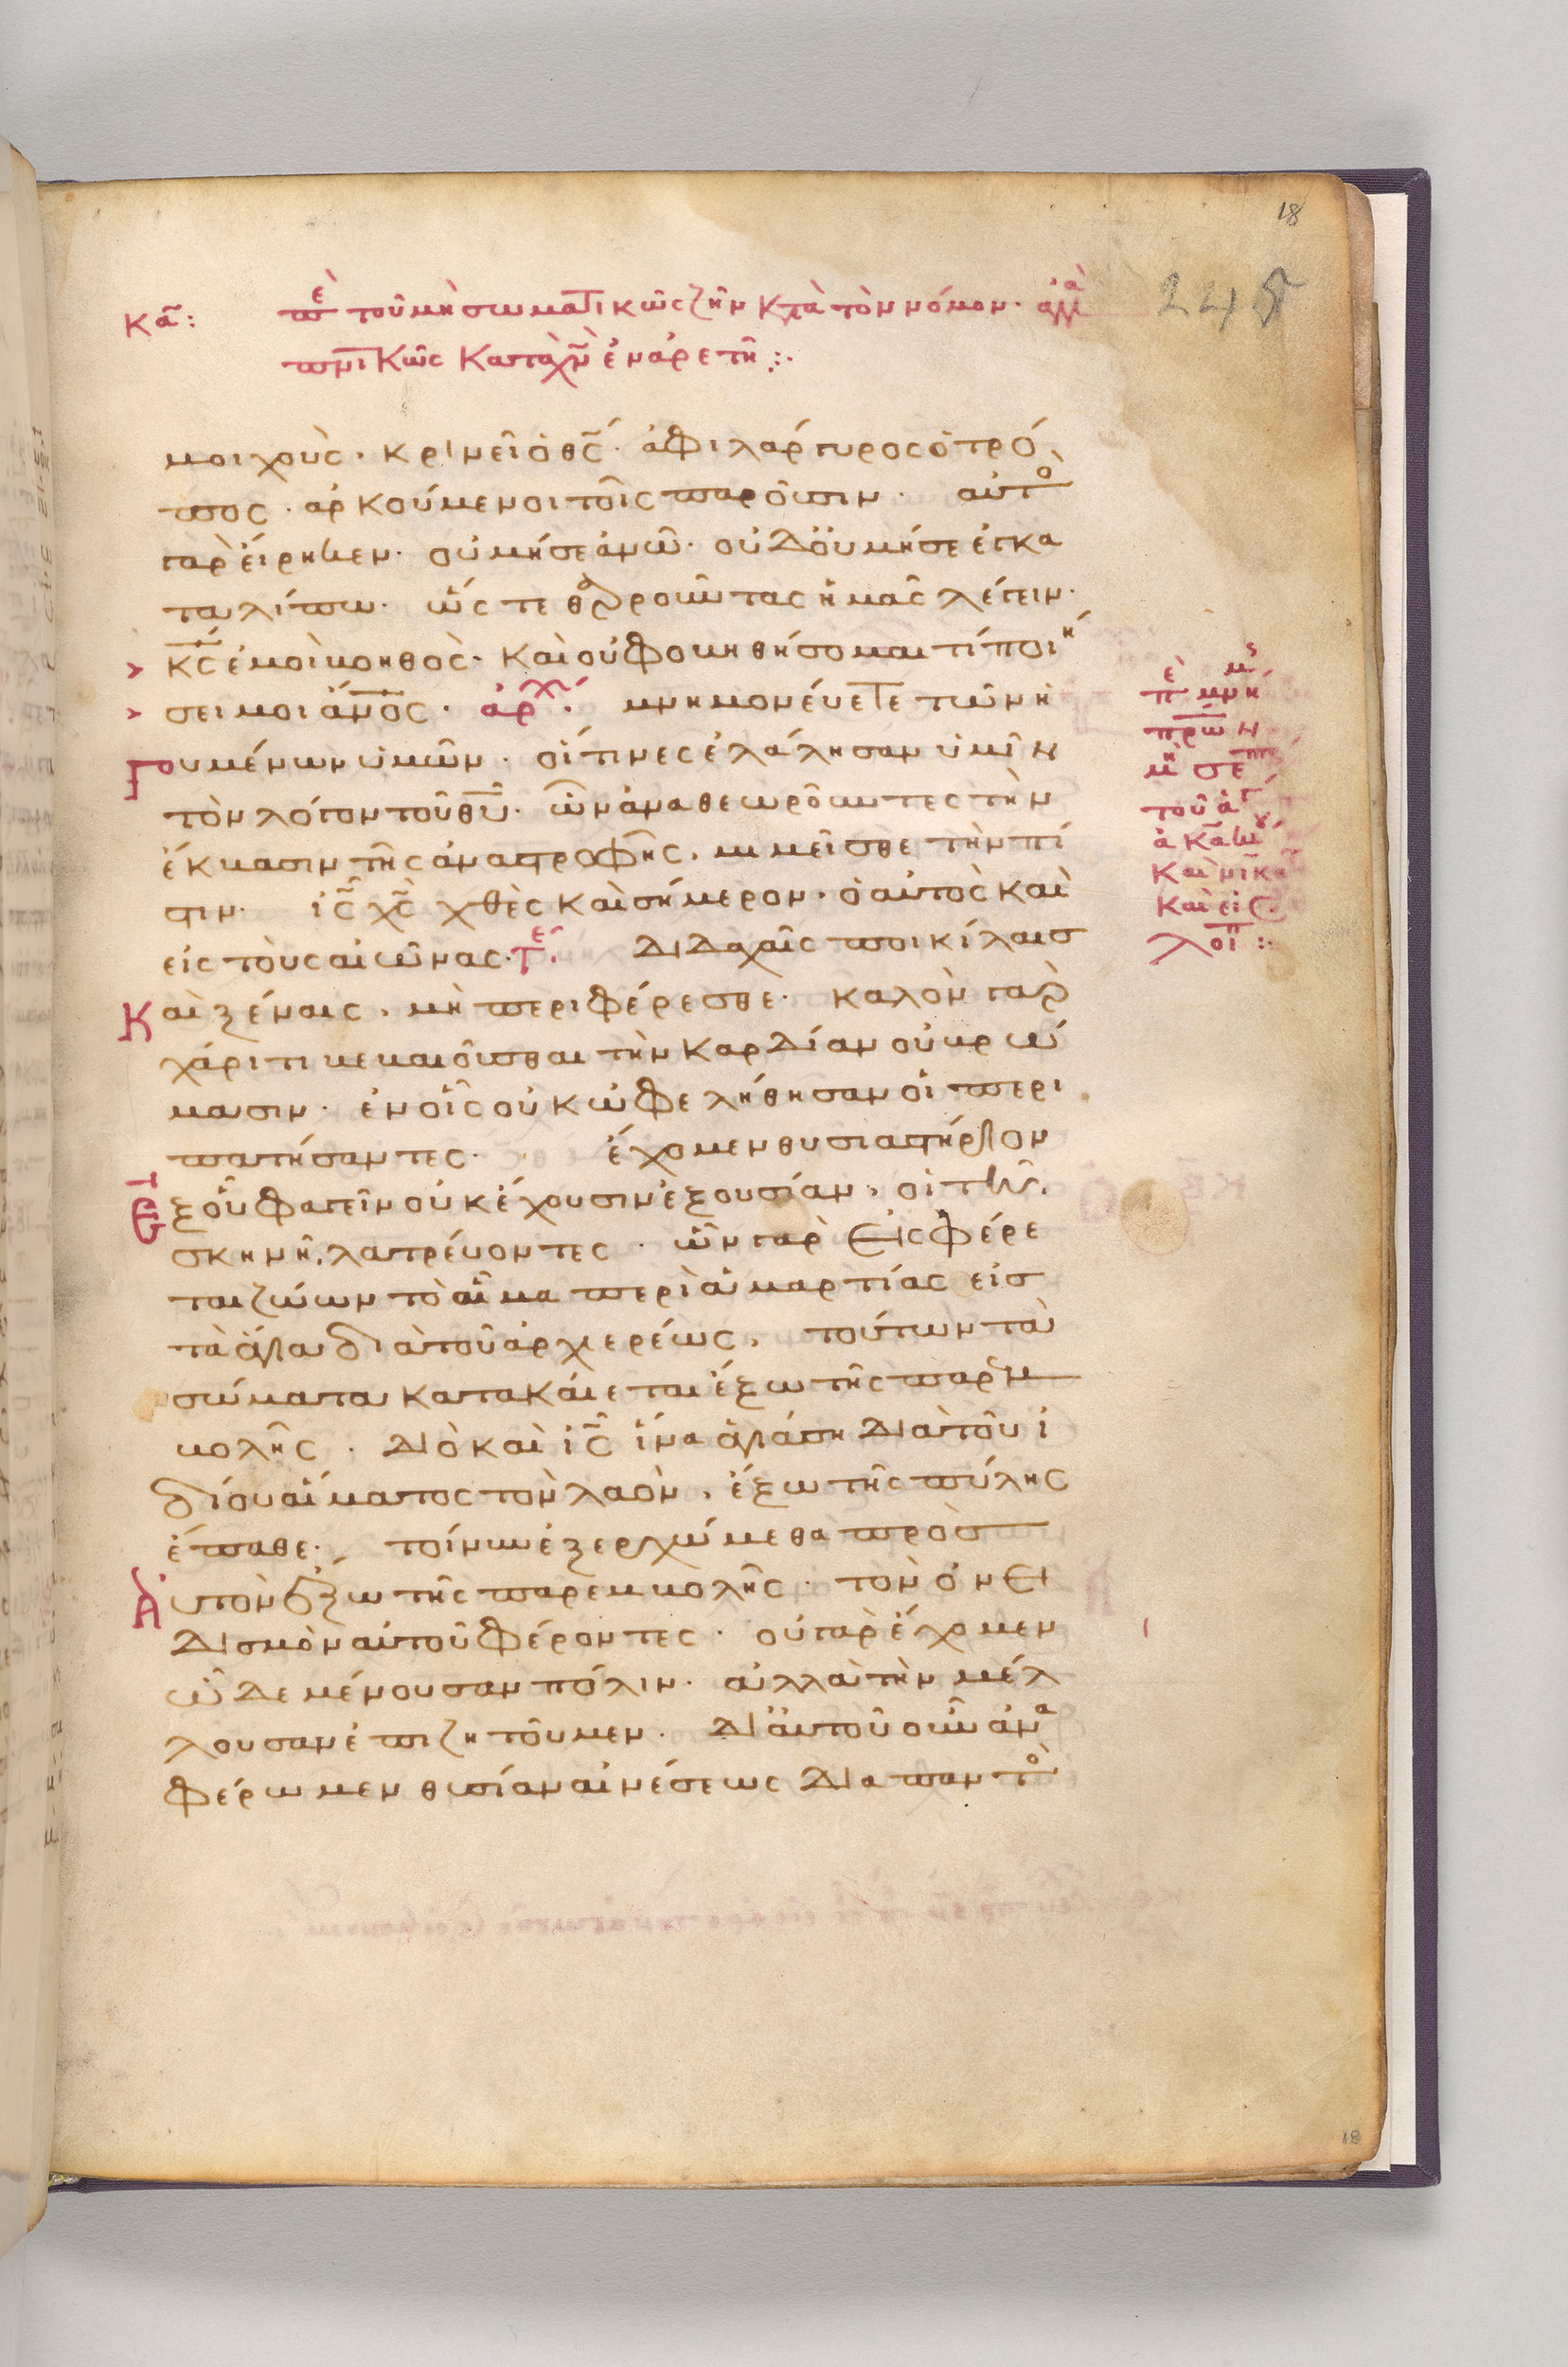 18
245
κα:
π̅ὲ τοῦ μὴ σωματικῶς ζῆν κτὰ τὸν νόμον· ἀλλὰ
πνι̅κῶς κατὰ χν̅ ἐν ἀρετῆ :·
μοιχοὺς· κρινεῖ ὁ θς̅· ἀφιλάργυρος ὁ τρό
πος· ἀρκούμενοι τοῖς παροῦσιν· αὐτο
γὰρ εἴρηκεν· οὐ μή σε ἀνῶ· οὐδ᾽ οὐ μή σε ἐγκα
ταλίπω· ὥστε θαρροῦντας ἡμᾶς λέγειν·
> κς̅ ἐμοὶ βοηθὸς· καὶ οὐ φοβηθήσομαι τί ποιή
> σει μοι ἄνο̅ς· ἀρχ· μνημονεύετε τῶν ἡ
γουμένων ὑμῶν· οἵτινες ἐλάλησαν ὑμῖν
τὸν λόγον τοῦ θυ̅· ὧν ἀναθεωροῦντες τὴν
ἔκβασιν τῆς ἀναστροφῆς, μιμεῖσθε τὴν πί
στιν· ις̅ χς̅ χθὲς καὶ σήμερον· ὁ αὐτὸς καὶ
εἰς τοὺς αἰῶνας· τε· Διδαχαῖς ποικίλαισ
Καὶ ξέναις, μὴ περιφέρεσθε· καλὸν γὰρ
χάριτι βεβαιοῦσθαι τὴν καρδίαν οὐ βρώ
μασιν· ἐν οἷς οὐκ ὠφελήθησαν οἱ περι
πατήσαντες· ἔχομεν θυσιαστήριον
ἐξ οὗ φαγεῖν οὐκ ἔχουσιν ἐξουσίαν, οἱ τῆ
σκηνῆ, λατρεύοντες· ὧν γὰρ εἰσφέρε
ται ζώων τὸ αἷμα περὶ ἁμαρτίας εἰσ
τὰ ἅγια διὰ τοῦ ἀρχιερέως, τούτων τὰ
σώματα κατακαίεται ἔξω τῆς παρεμ
βολῆς· Διὸ καὶ ις̅ ἵνα ἁγιάση διὰ τοῦ ἰ
δίου αἵματος τὸν λαὸν, ἔξω τῆς πύλης
ἔπαθε· τοίνυν ἐξερχώμεθα πρὸσ
Αὐτὸν ἔξω τῆς παρεμβολῆς· τὸν ὀνει
δισμὸν αὐτοῦ φέροντες· οὐ γὰρ ἔχομεν
ὧδε μένουσαν πόλιν· ἀλλὰ τὴν μέλ
λουσαν ἐπιζητοῦμεν· Δι᾽ αὐτοῦ οὖν ἀνα
φέρωμεν θυσίαν αἰνέσεως διαπαντὸ
18